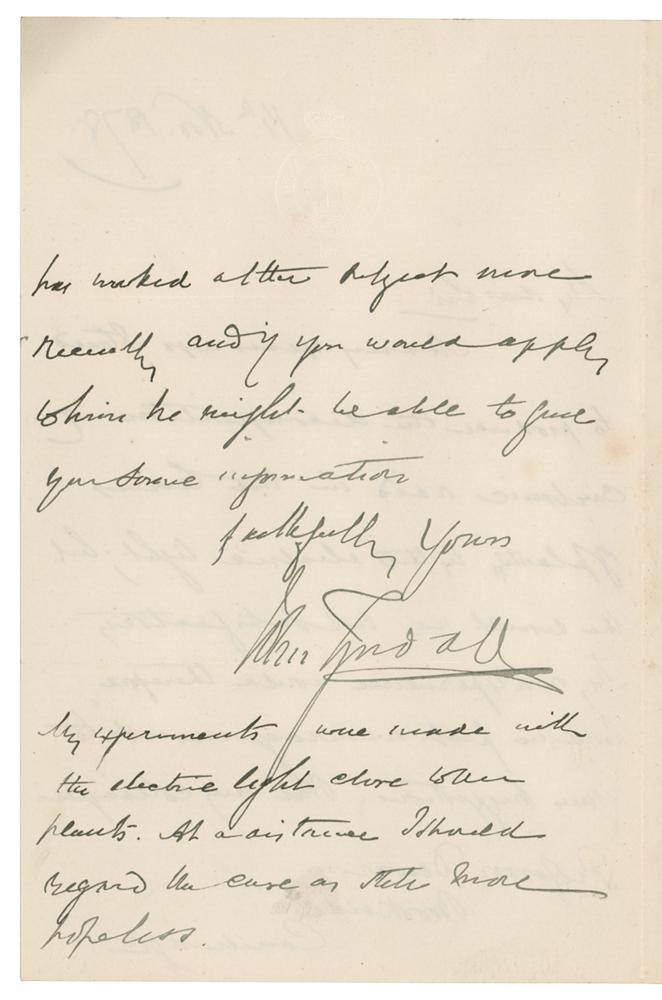 has worked at the subject more
recently and if you would apply
to him he might be able to give
you some information
faithfully Yours
John Tyndall
My experiments were made with
the electric light close to the
plants. At a distance I should
regard the case as still more
hopeless.